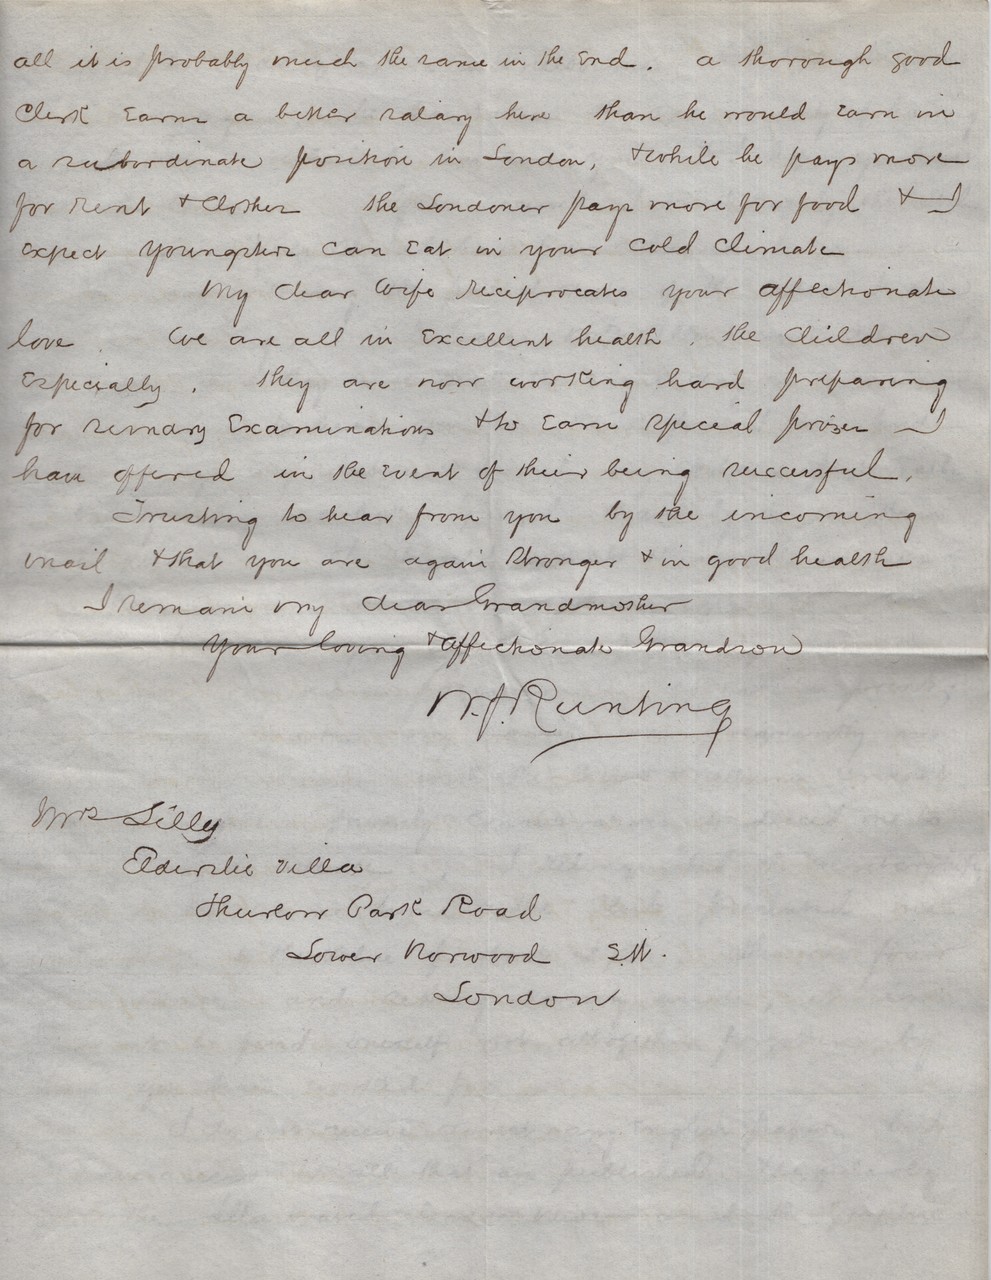 all it is probably much the same in the End. a thorough good
Clerk Earns a better salary here than he would Earn in
a subordinate position in London, & while he pays more
for Rent & Clothes the Londoner pays more for food & I
expect youngsters can Eat in your cold climate
My dear Wife reciprocates your affectionate
love. We are all in Excellent health. the Children
Especially. they are now working hard preparing
for sundry Examinations & to Earn special prizes I
have offered in the event of their being successful.
Trusting to hear from you by the incoming
mail & that you are again stronger & in good health
I remain my dear Grandmother
Your loving & affectionate Grandson
W. J. Runting
Mrs Lilly
Elderslie Villa
Thurlow Park Road
Lower Norwood S.W.
London